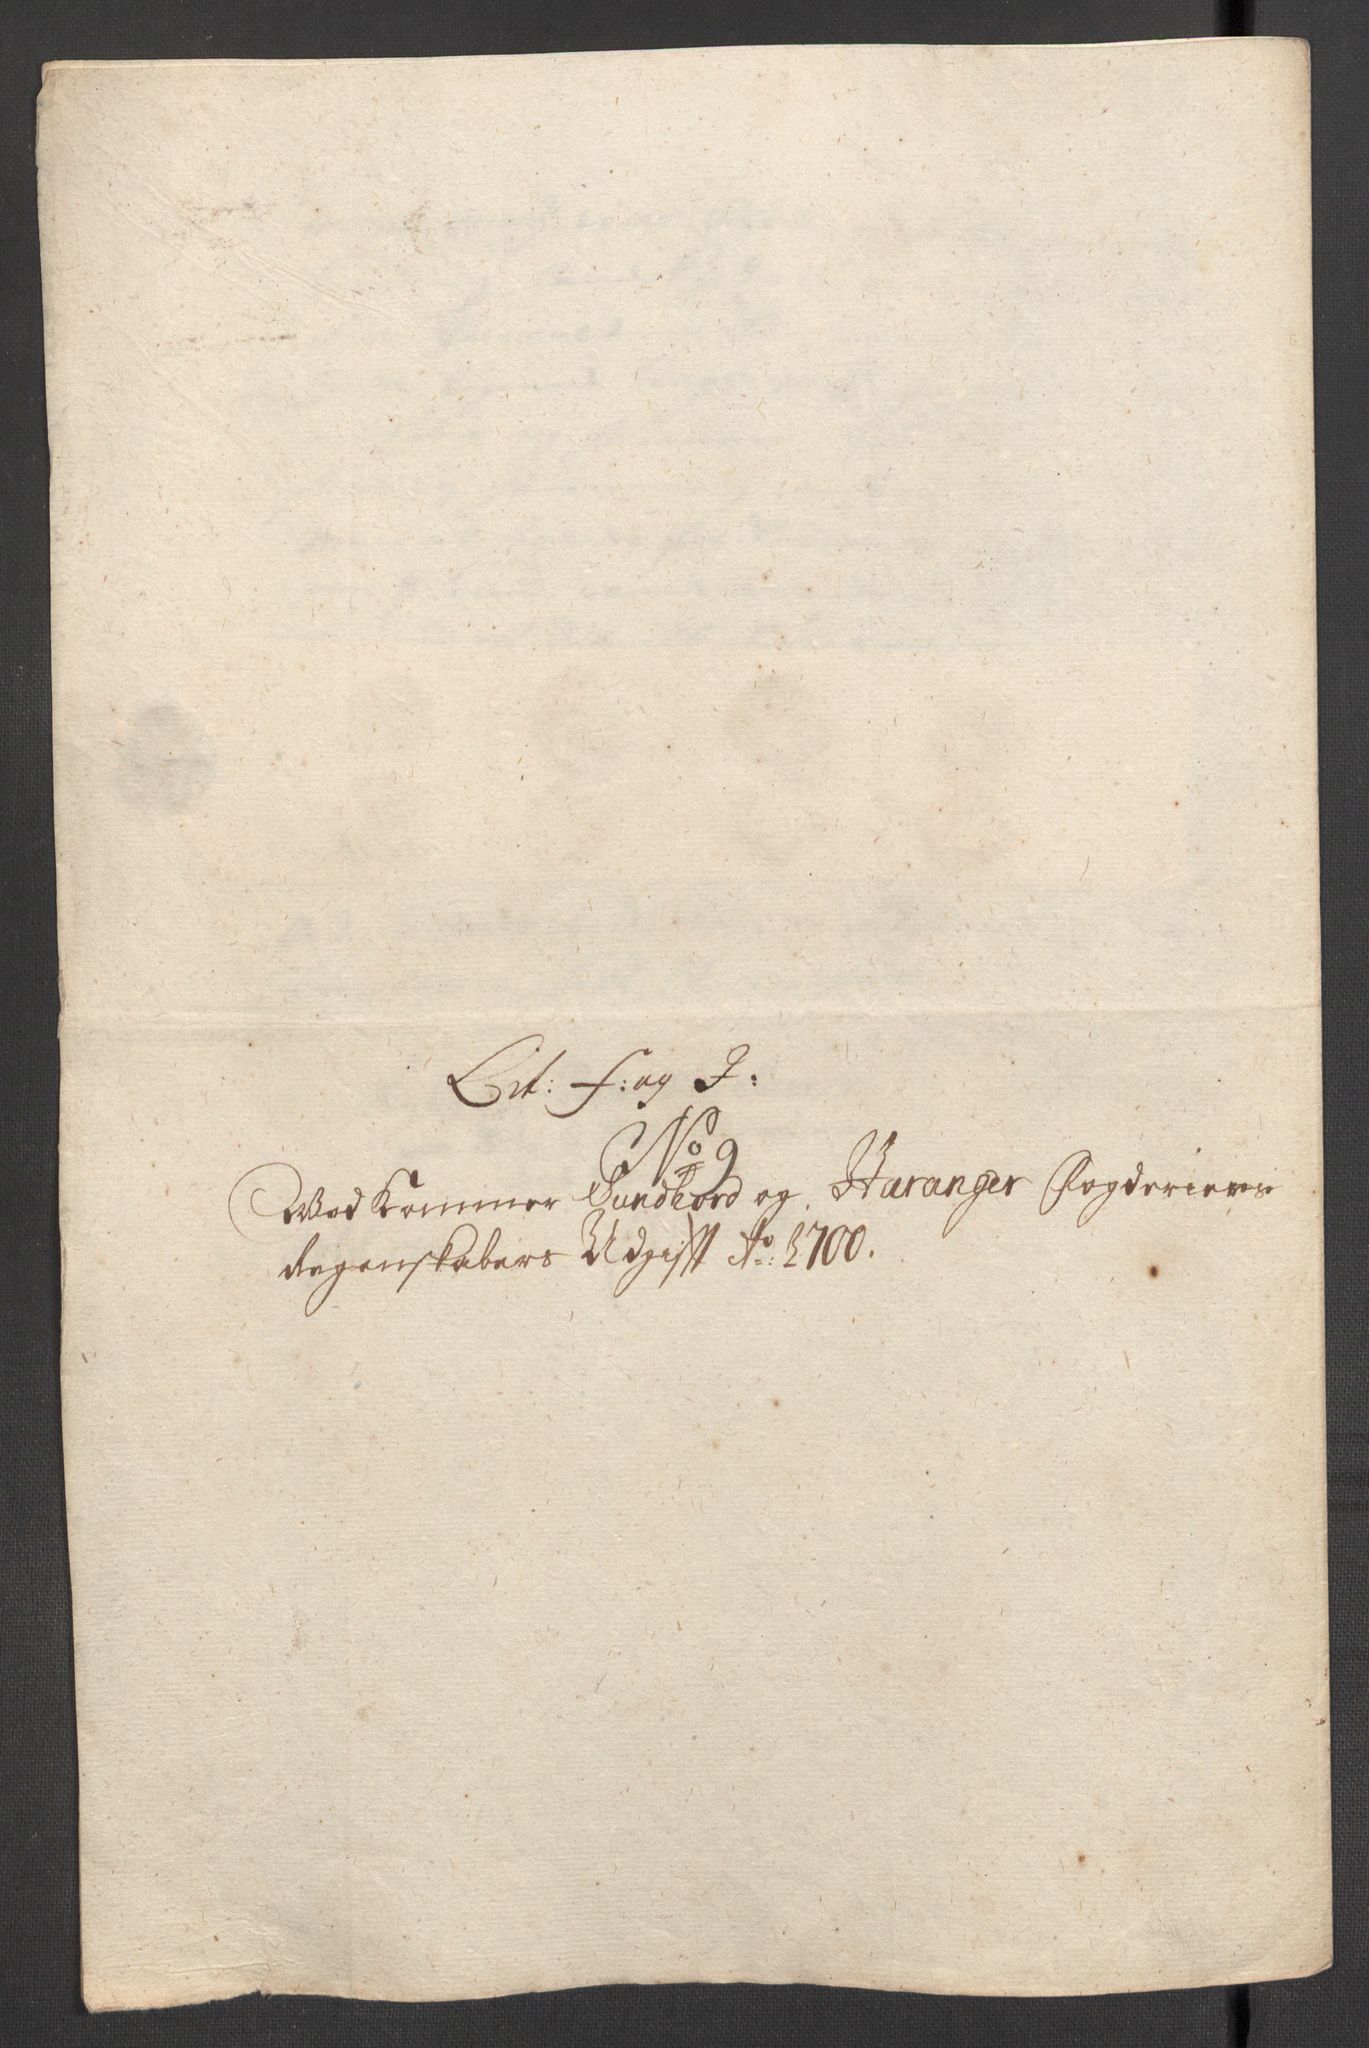 Lit: F: og J:
No 9
Wed Kommer Sundhord og Haranger Fogderiers
Regenskabers Udgifft Ao: 1700.